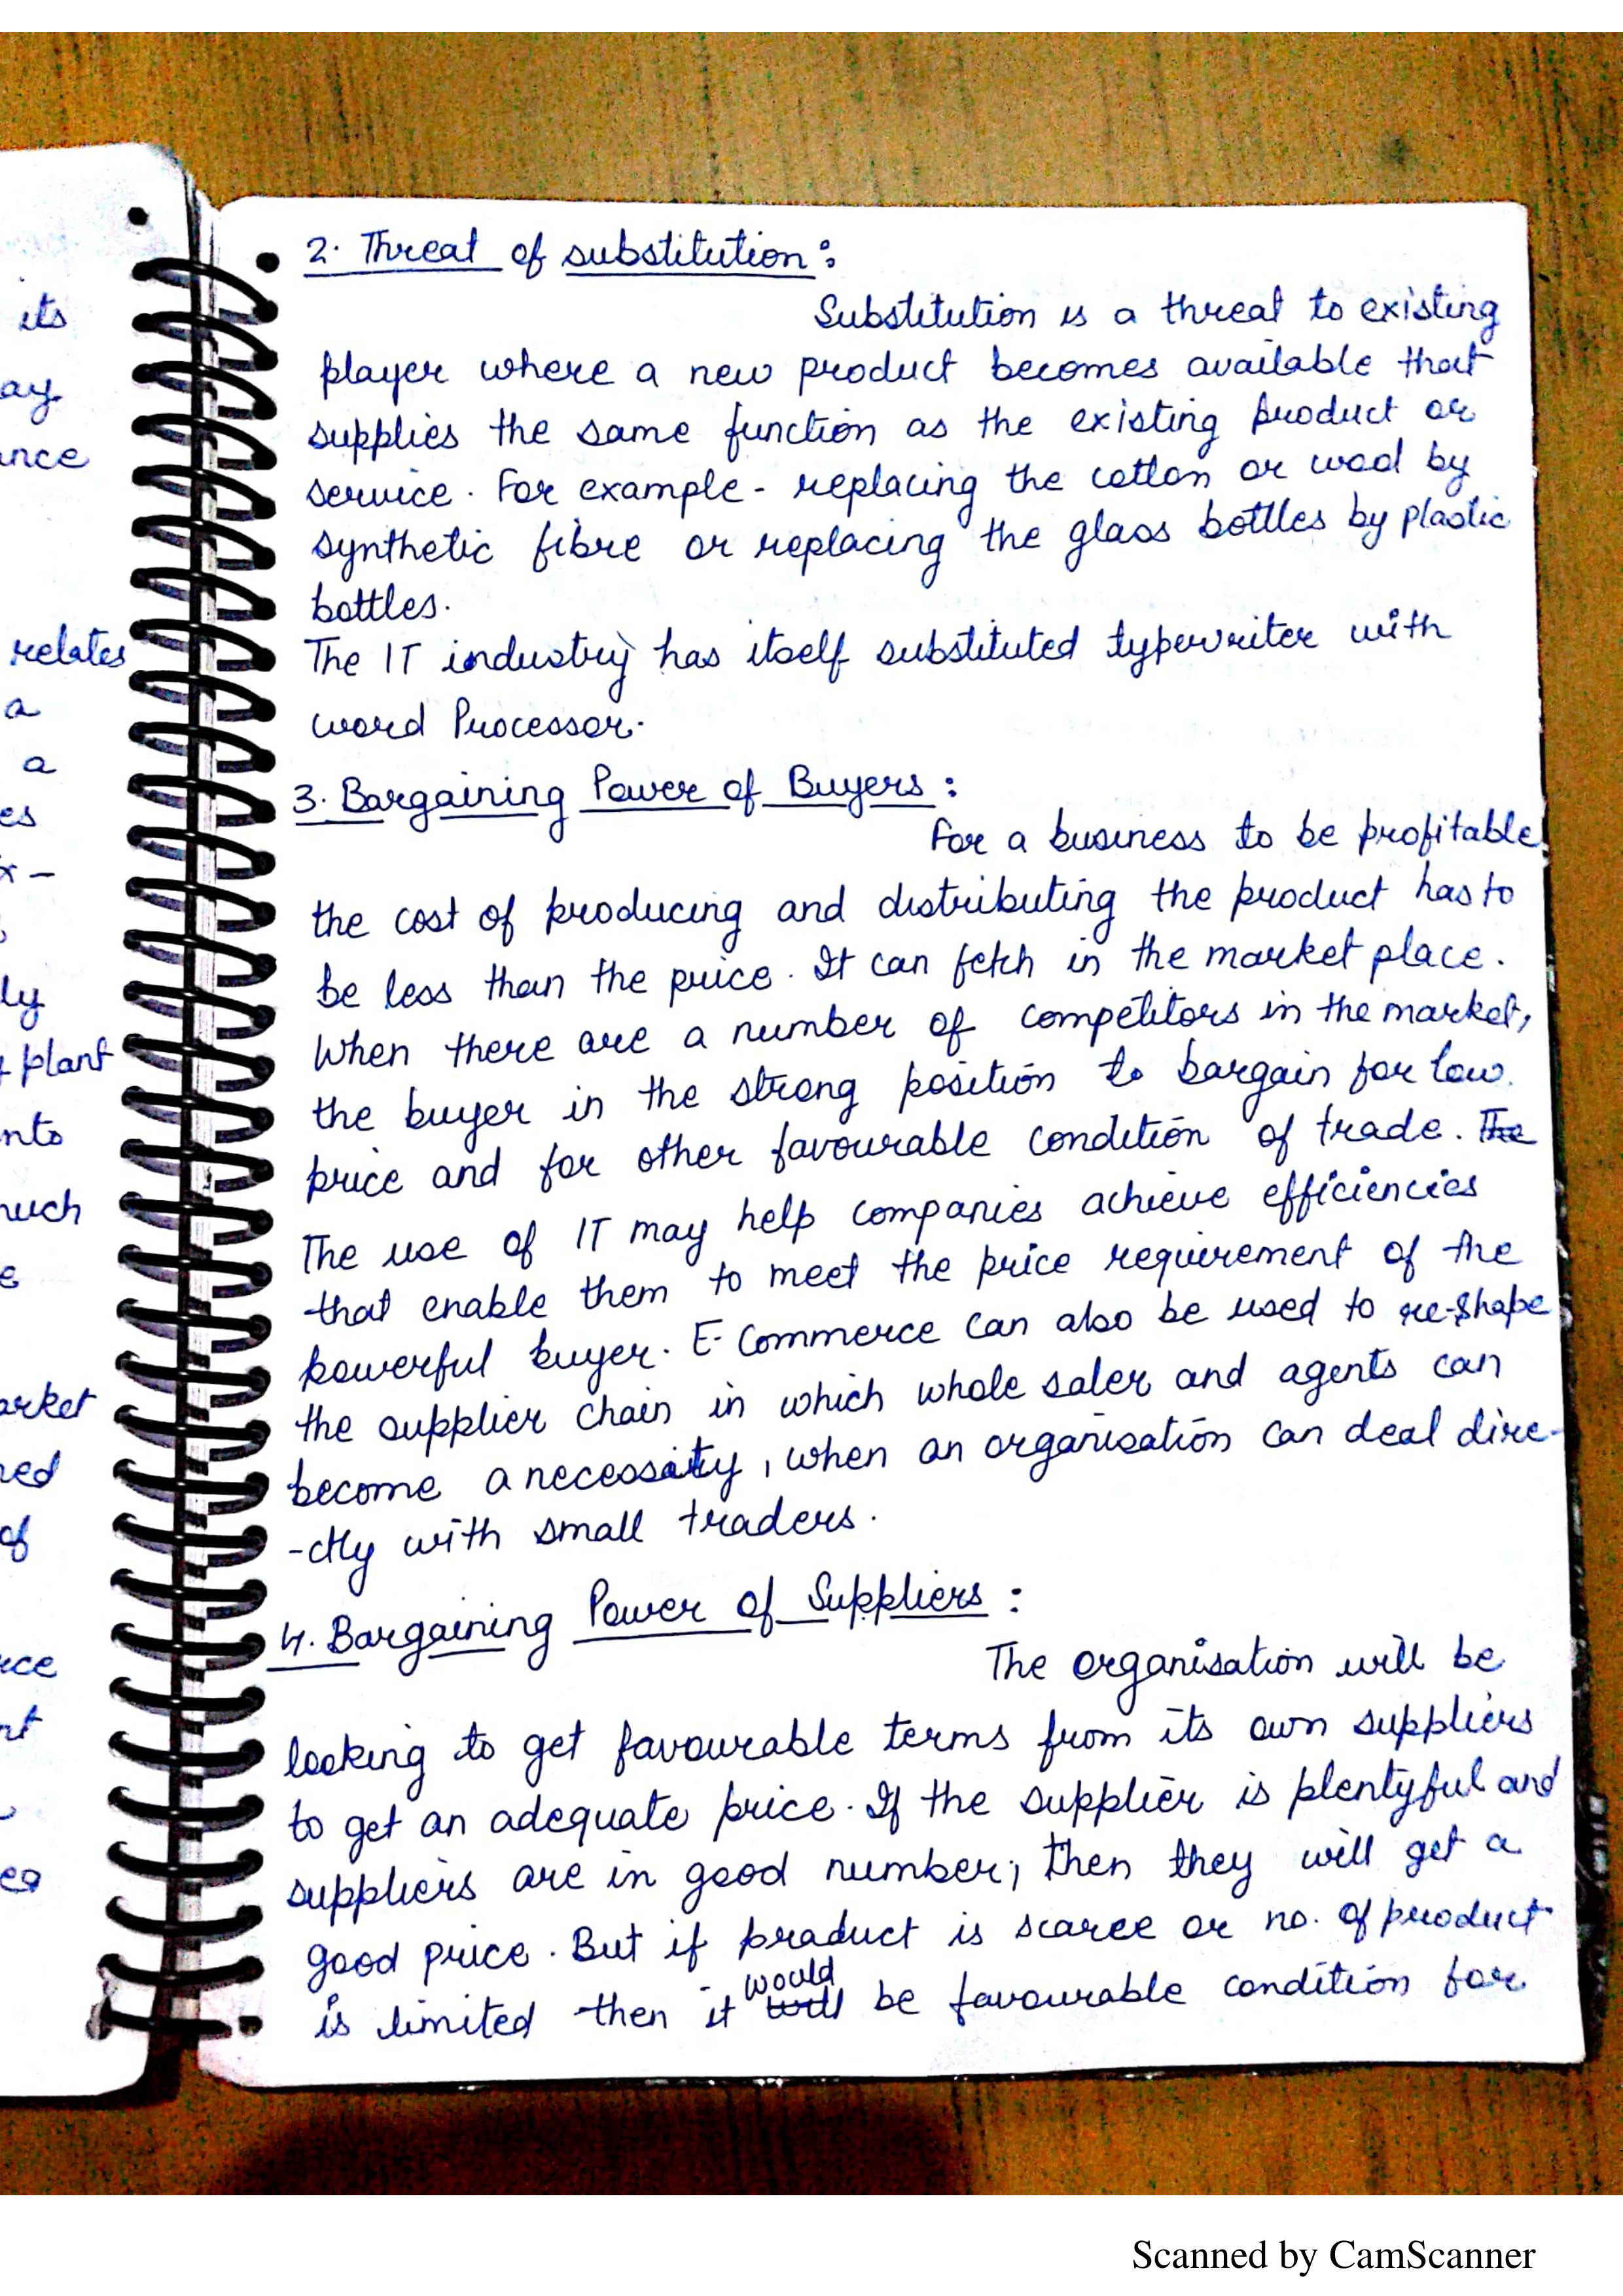 its
ay
ance
relates
a
a
es
x -
ly
plant
nto
much
e
arket
red
of
rce
nt
es
2. Threat of substitution :
Substitution is a threat to existing
player where a new product becomes available that
supplies the same function as the existing product or
service. For example - replacing the cotton or wool by
synthetic fibre or replacing the glass bottles by plastic
bottles.
The IT industry has itself substituted typewriter with
word Processor.
3. Bargaining Power of Buyers :
For a business to be profitable
the cost of producing and distributing the product has to
be less than the price. It can fetch in the market place.
When there are a number of competitors in the market,
the buyer in the strong position to bargain for low
price and for other favourable condition of trade. The
The use of IT may help companies achieve efficiencies
that enable them to meet the price requirement of the
powerful buyer. E-Commerce can also be used to re-shape
the supplier chain in which whole saler and agents can
become a necessity, when an organisation can deal dire-
-ctly with small traders.
4. Bargaining Power of Suppliers :
The organisation will be
looking to get favourable terms from its own suppliers
to get an adequate price. If the supplier is plentyful and
suppliers are in good number; then they will get a
good price. But if product is scarce or no. of product
is limited then it will would be favourable condition for
Scanned by CamScanner